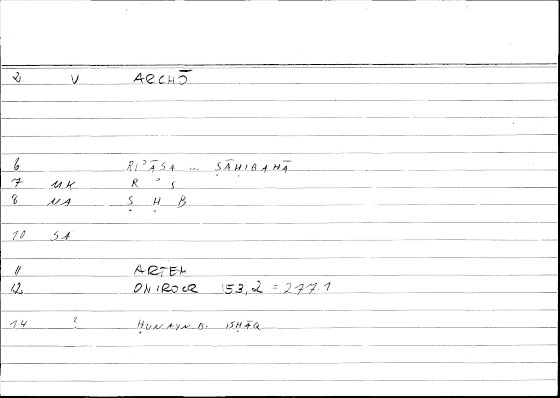 2 V ARCHŌ
6 RIʾĀSA ... ṢĀḤIBAHĀ
7 MK R ʾ S
8 NA Ṣ Ḥ B
10 SA
11 ARTEM
12 ONIROCR 153,2 = 277.1
14 ? ḤUNAYN B. ISḤĀQ